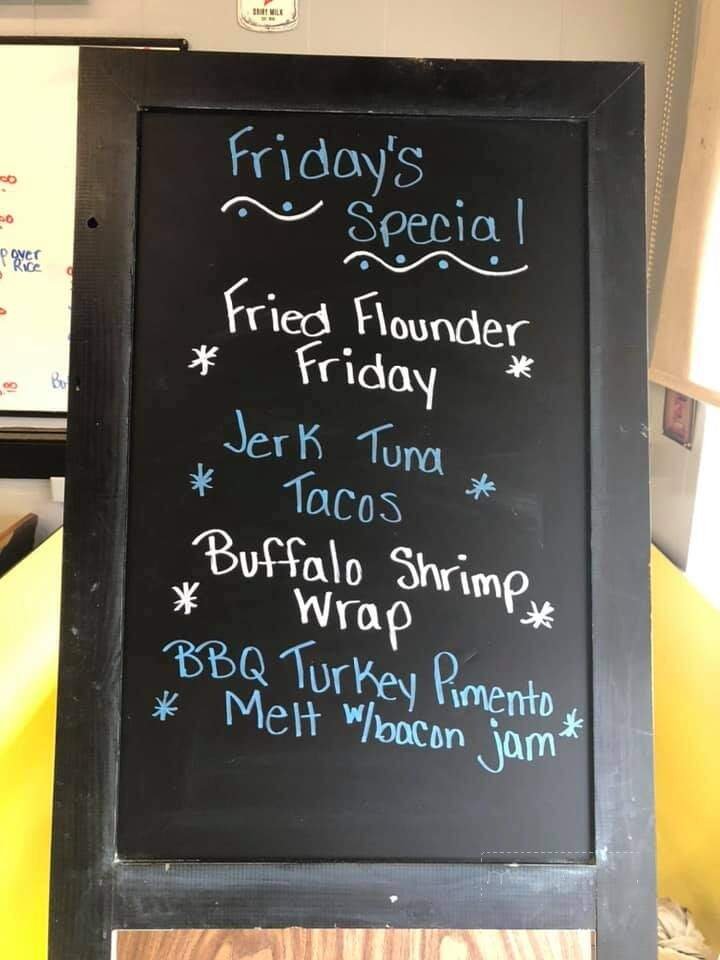 DAIRY MILK
Friday's
Special
Fried Flounder
* Friday *
Jerk Tuna
* Tacos *
Buffalo Shrimp
* Wrap *
BBQ Turkey Pimento
* Melt w/bacon jam *
over
Rice